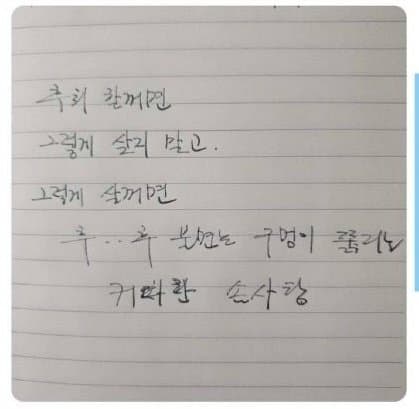 후회 할꺼면
그렇게 살지 말고.
그렇게 살꺼면
후..후 불면은 구멍이 뚫리는
커다란 솜사탕